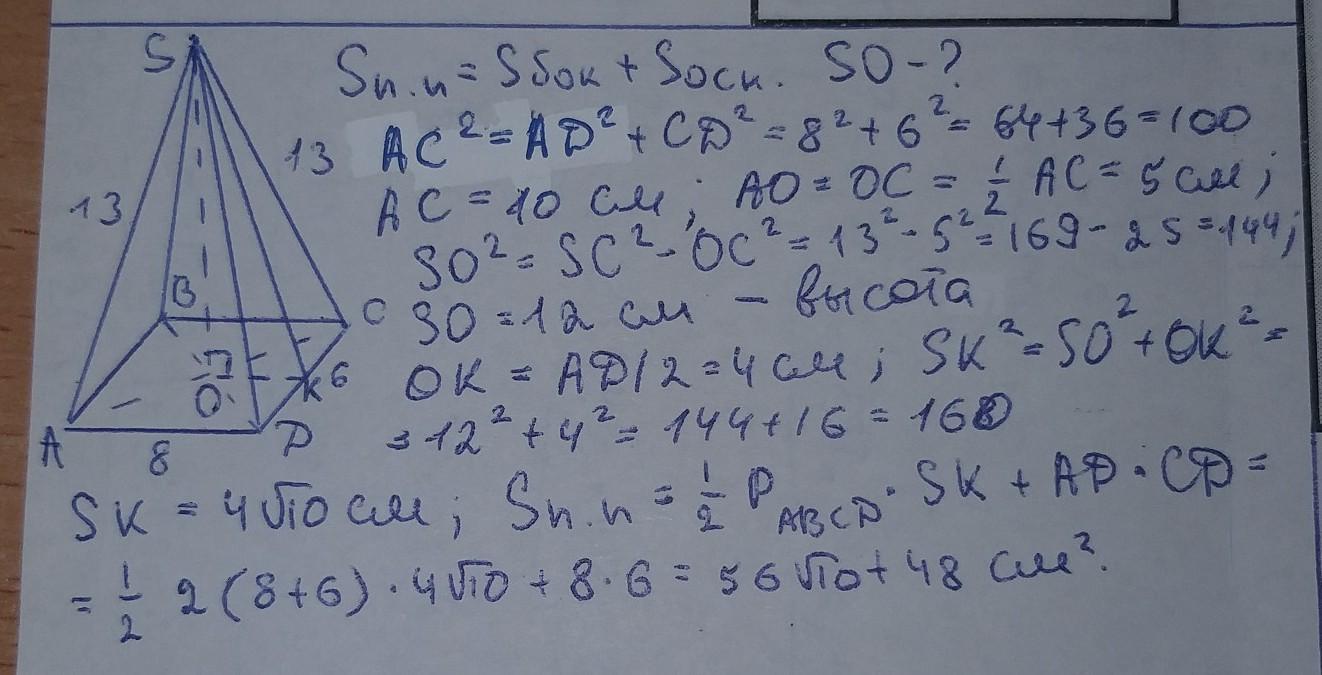 Sп.п = Sбок + Sосн. SO - ?
AC² = AD² + CD² = 8² + 6² = 64 + 36 = 100
AC = 10 см; AO = OC = 1/2 AC = 5 см;
SO² = SC² - OC² = 13² - 5² = 169 - 25 = 144;
SO = 12 см - высота
OK = AD/2 = 4 см; SK² = SO² + OK² =
= 12² + 4² = 144 + 16 = 160
SK = 4√10 см; Sп.п = 1/2 P ABCD · SK + AD · CD =
= 1/2 2(8+6) · 4√10 + 8·6 = 56√10 + 48 см².
S
13
13
B
C
O
K
6
A
8
D